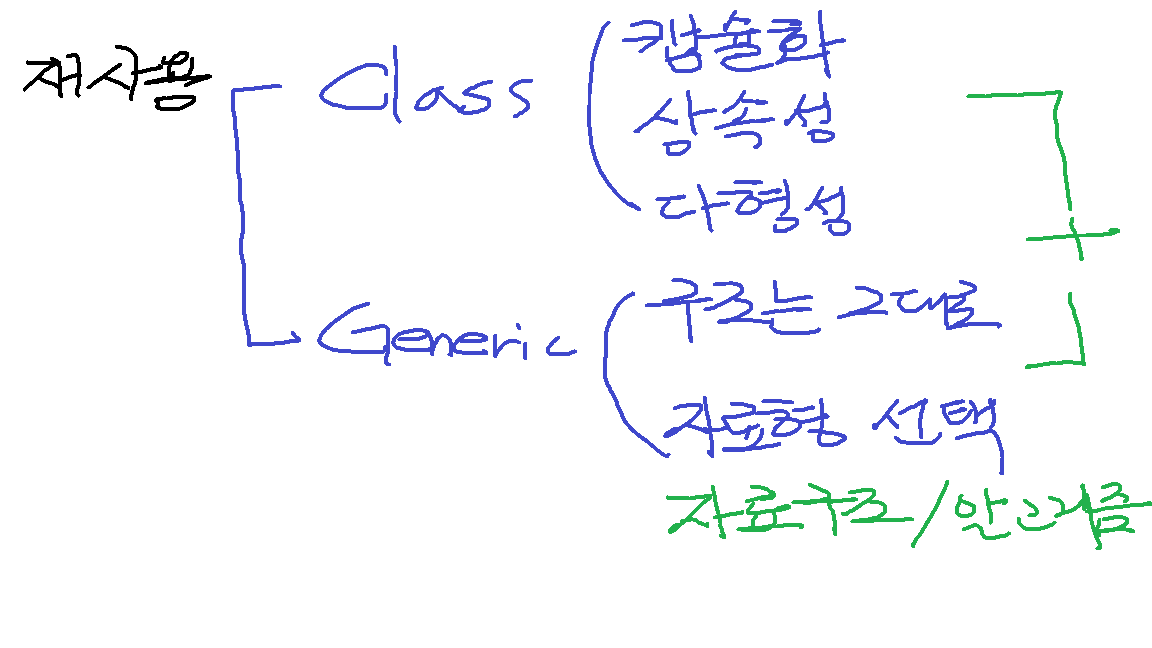 재사용
Class
캡슐화
상속성
다형성
Generic
구조는 그대로
자료형 선택
자료구조/안고리즘